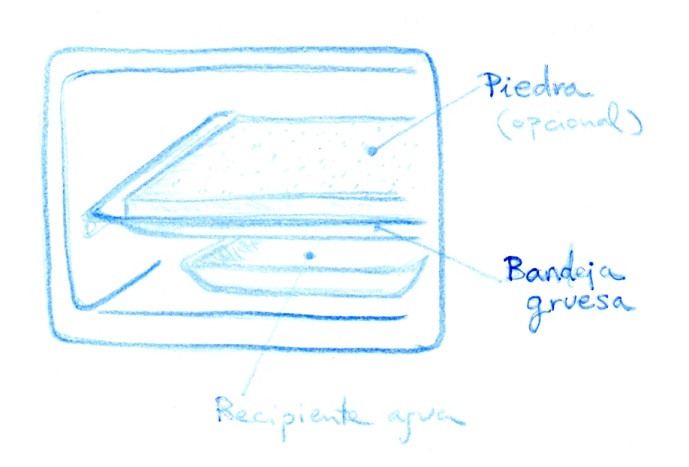 Piedra
(opcional)
Bandeja
gruesa
Recipiente agua